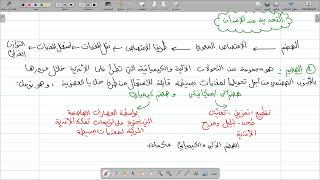 التغذية عند الإنسان
الهضم ← الامتصاص المعوي ← طريقا الامتصاص ← نقل المغذيات ← استعمال المغذيات ← التوازن الغذائي
الهضم : هو مجموعة من التحولات الآلية والكيميائية التي تطرأ على الأغذية خلال مرورها
بالأنبوب الهضمي من أجل تحويلها لمغذيات بسيطة قابلة للامتصاص عن طريق خلايا العضوية ، وهو نوعان :
هضم آلي ميكانيكي و هضم كيميائي
تقطيع - تمزيق - تفتيت
طحن - تبليل ومزج
الأغذية
بواسطة العصارات الهاضمة
التي تحتوي على إنزيمات تفكك الأغذية
المركبة لمغذيات بسيطة
الهضم الآلي والكيميائي متكاملان